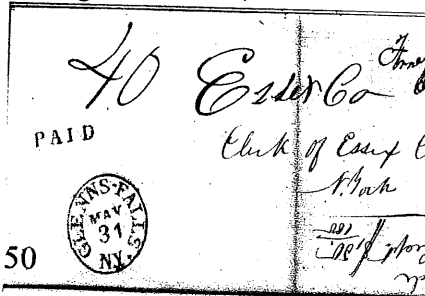 40
Essex Co
PAID
Clerk of Essex C
N. York
GLENNS-FALLS
MAY
31
NY.
50